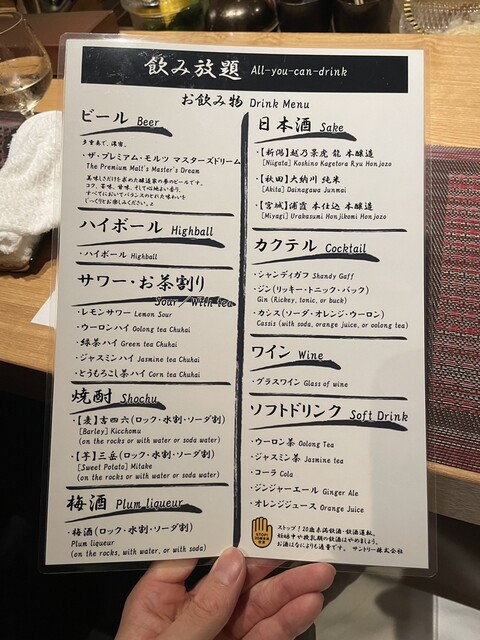 飲み放題 All-you-can-drink
お飲み物 Drink Menu
ビール Beer
・ザ・プレミアム・モルツ マスターズドリーム
The Premium Malt's Master's Dream
美味しさだけを求めた醸造家の夢のビールです。
コク、苦味、甘味、そして心地よい香り。
すべてにおいてバランスのとれた味わいを
ごゆっくりとお楽しみください。
ハイボール Highball
・ハイボール Highball
サワー・お茶割り
Sour / With tea
・レモンサワー Lemon Sour
・ウーロンハイ Oolong tea Chuhai
・緑茶ハイ Green tea Chuhai
・ジャスミンハイ Jasmine tea Chuhai
・とうもろこし茶ハイ Corn tea Chuhai
焼酎 Shochu
・【麦】吉四六(ロック・水割・ソーダ割)
[Barley] Kicchomu
(on the rocks or with water or soda water)
・【芋】三岳(ロック・水割・ソーダ割)
[Sweet Potato] Mitake
(on the rocks or with water or soda water)
梅酒 Plum liqueur
・梅酒(ロック・水割・ソーダ割)
Plum liqueur
(on the rocks, with water, or with soda)
日本酒 Sake
・【新潟】越乃景虎 龍 本醸造
[Niigata] Koshino Kagetora Ryu Honjozo
・【秋田】大納川 純米
[Akita] Dainagawa Junmai
・【宮城】浦霞 本仕込 本醸造
[Miyagi] Urakasumi Honjikomi Honjozo
カクテル Cocktail
・シャンディガフ Shandy Gaff
・ジン(リッキー・トニック・バック)
Gin (Rickey, tonic, or buck)
・カシス(ソーダ・オレンジ・ウーロン)
Cassis (with soda, orange juice, or oolong tea)
ワイン Wine
・グラスワイン Glass of wine
ソフトドリンク Soft Drink
・ウーロン茶 Oolong Tea
・ジャスミン茶 Jasmine tea
・コーラ Cola
・ジンジャーエール Ginger Ale
・オレンジジュース Orange Juice
ストップ!20歳未満飲酒・飲酒運転。
妊娠中や授乳期の飲酒はやめましょう。
お酒はなによりも適量です。 サントリー株式会社